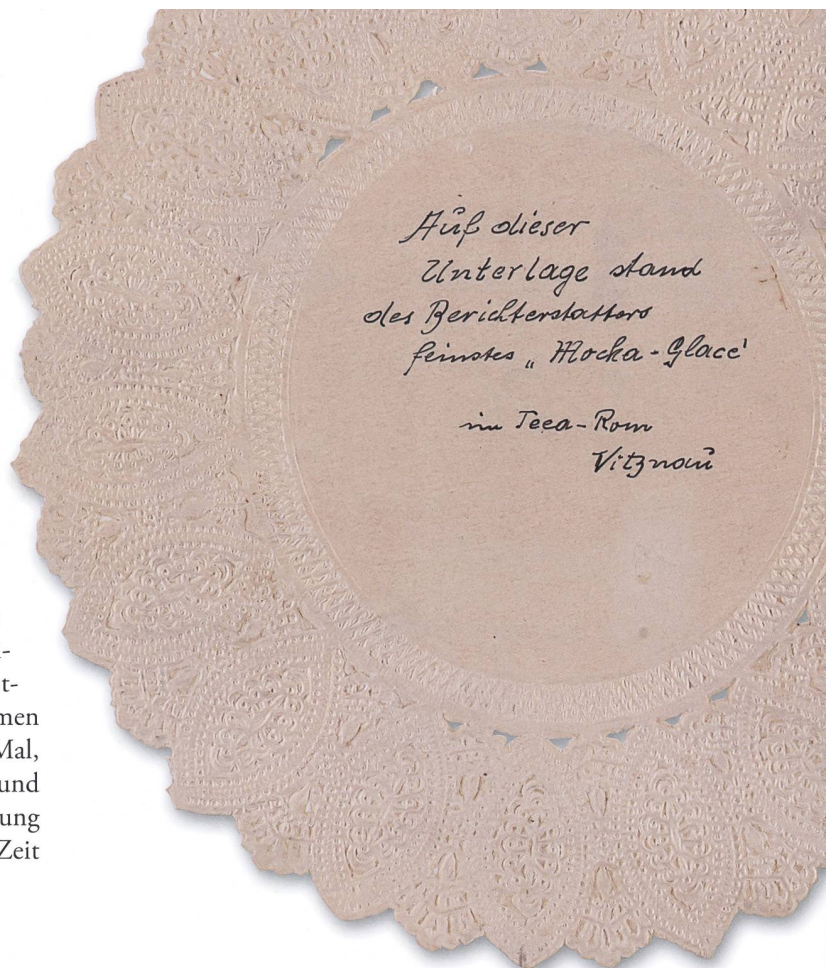 Auf dieser
Unterlage stand
des Berichterstatters
feinstes „Mocka-Glacé'
im Teea-Rom
Vitznau
-
t-
men
Mal,
und
ung
Zeit